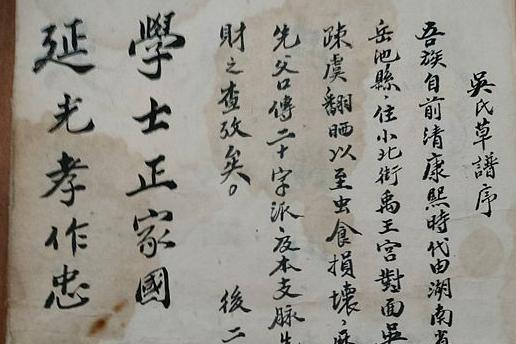 吳氏草譜序
吾族自前清康熙時代由湖南省
岳池縣、住小北街禹王宮對面吳
疎虞翻晒以至虫食損壞、
先父口傳二十字派、及本支脈
財之查攷矣。 後二
學士正家國
延光孝作忠